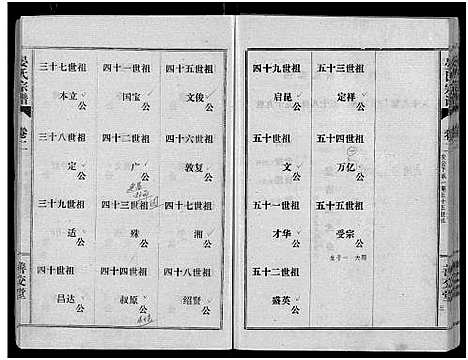 晏氏宗谱
卷二
善交堂
三十七世祖
本立公
三十八世祖
定公
三十九世祖
适公
四十世祖
昌达公
四十一世祖
国宝公
四十二世祖
广公
四十三世祖
殊公
四十四世祖
叔原公
四十五世祖
文俊公
四十六世祖
敦复公
四十七世祖
湘公
四十八世祖
绍贤公
四十九世祖
启昆公
五十世祖
文公
五十一世祖
才华公
五十二世祖
盛英公
五十三世祖
定祥公
五十四世祖
万亿公
五十五世祖
受宗公